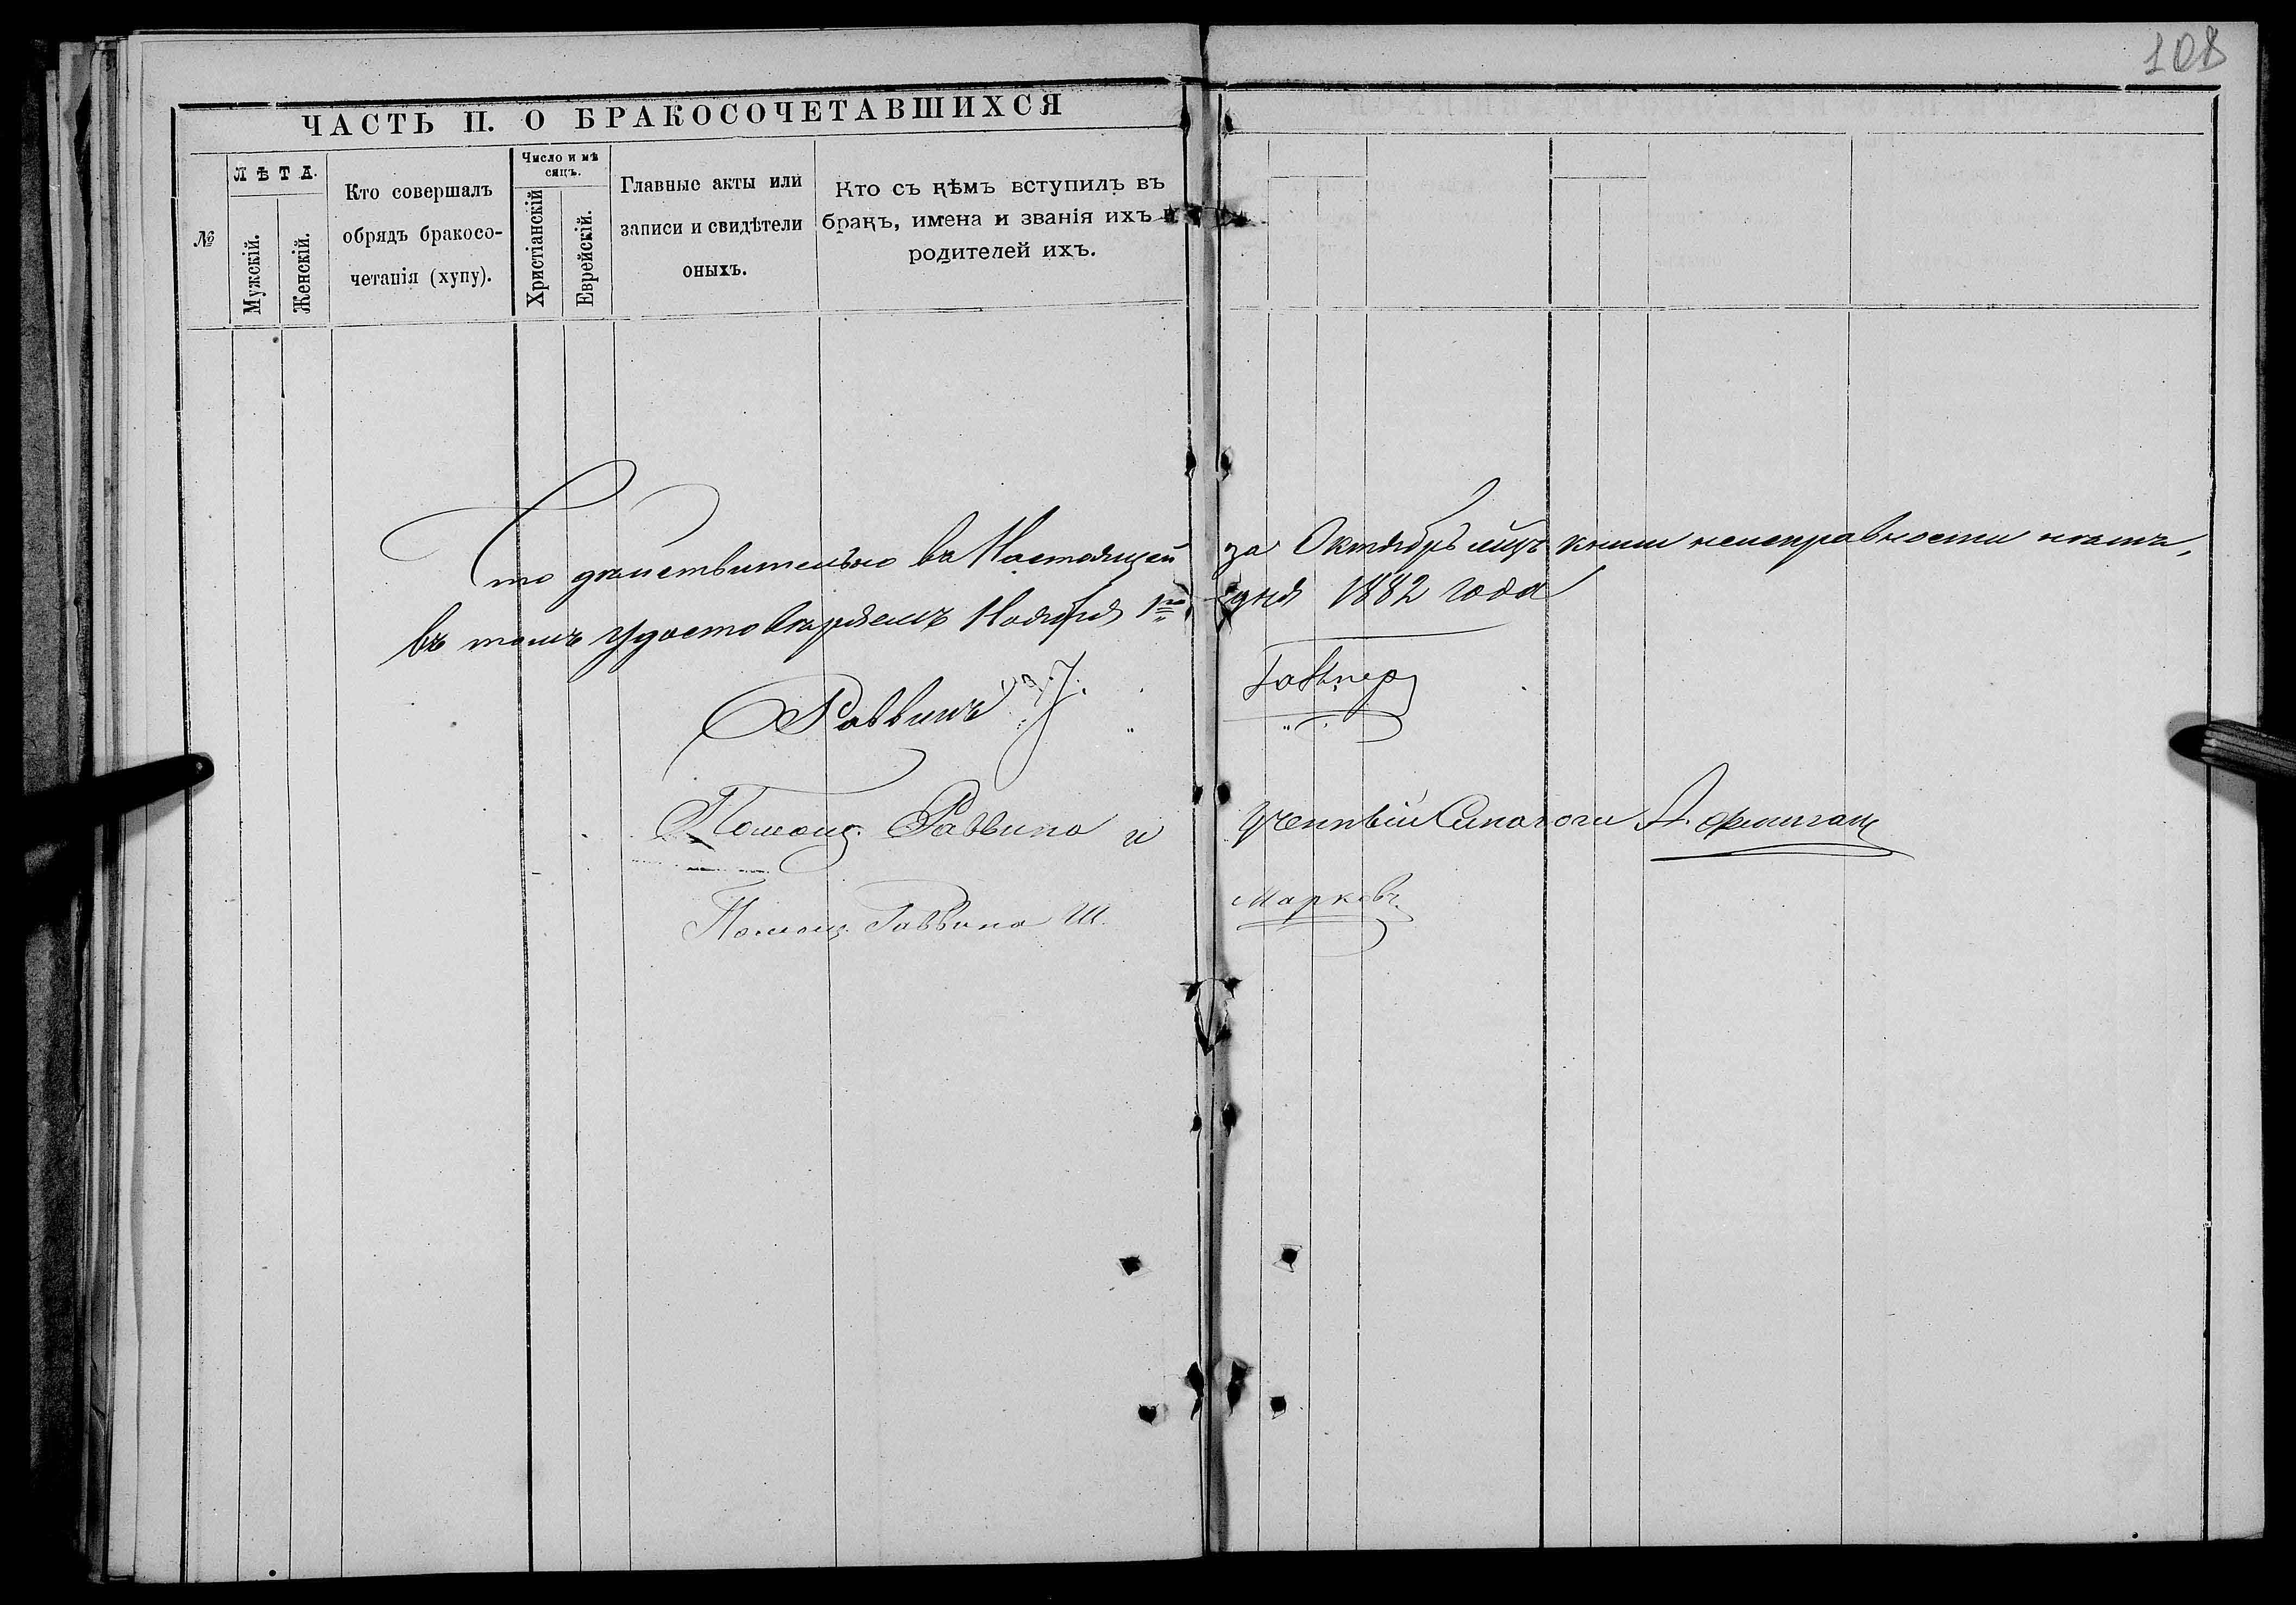 108
ЧАСТЬ II. О БРАКОСОЧЕТАВШИХСЯ
№
ЛѢТА.
Мужскій.
Женскій.
Кто совершалъ
обрядъ бракосо-
четанія (хупу).
Число и мѣ
сяцъ.
Христіанскій
Еврейскій.
Главные акты или
записи и свидѣтели
оныхъ.
Кто съ кѣмъ вступилъ въ
бракъ, имена и званія ихъ и
родителей ихъ.
Что дѣйствительно въ Настоящей за Октябрь мцъ книги неисправности нѣтъ,
въ томъ удостовѣряемъ Ноября 1го дня 1882 года
Раввинъ
Помощ. Раввина и Ученный Синагоги
Помощ. Раввина Ш. Марковъ